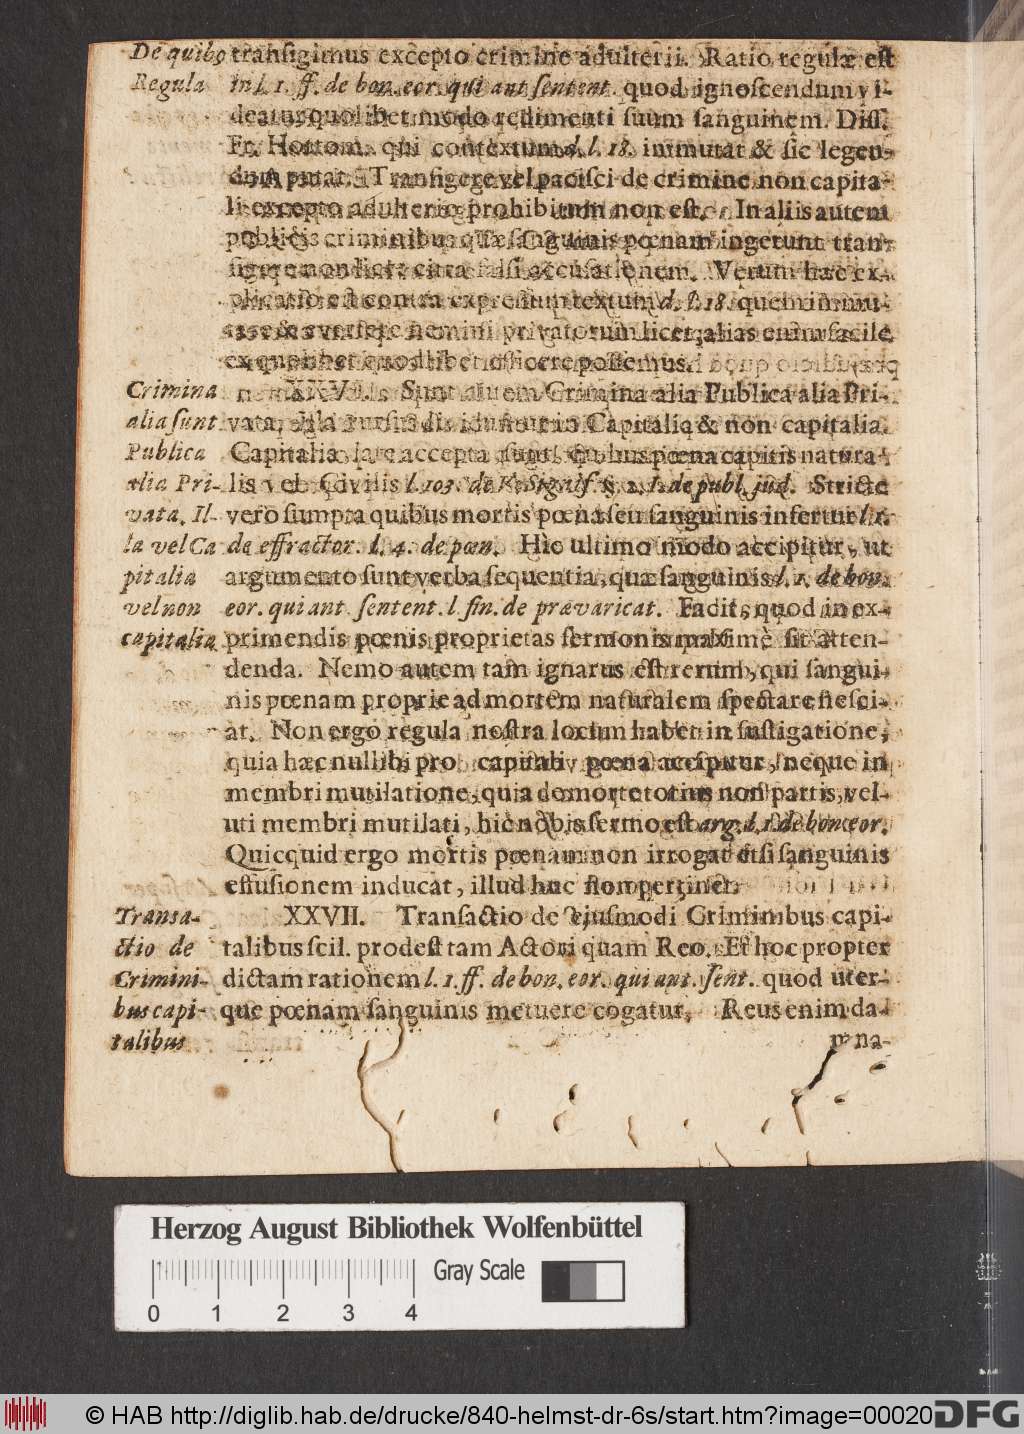 De quibꝯ transigimus excepto crimine adulterii. Ratio regulæ est
Regula in l. 1. ff. de bon. eor. qui ant sentent. quod ignoscendum vi-
deatur quolibet modo redimenti suum sanguinem. Diss.
Fr. Hottom. qui contextum d. l. 18. immutat & sic legen-
dum putat. Transigere vel pacisci de crimine non capita-
li excepto adulterio prohibitum non est. In aliis autem
publicis criminibus quæ sanguinis pœnam ingerunt tran-
sigere non licet citra falsi accusationem. Verum hæc ex-
plicatio est contra expressum textum d. l. 18. quem immu-
tare & evertere nemini privatorum licet, alias enim facile
ex quolibet quodlibet efficere possemus.
Crimina XXVI. Sunt autem Crimina alia Publica alia Pri-
alia sunt vata, illa rursus dividuntur in Capitalia & non capitalia.
Publica Capitalia large accepta sunt, quibus pœna capitis natura-
alia Pri- lis vel Civilis l. 103. de V. Signif. §. 2. I. de publ. jud. Stricte
vata. Il- vero sumpta quibus mortis pœna seu sanguinis infertur l. 1.
la vel Ca de effractor. l. 4. de pœn. Hic ultimo modo accipitur, ut
pitalia argumento sunt verba sequentia, quæ sanguinis l. 1. de bon.
vel non eor. qui ant. sentent. l. fin. de prævaricat. Facit, quod in ex-
capitalia primendis pœnis proprietas sermonis maximè sit atten-
denda. Nemo autem tam ignarus est rerum, qui sangui-
nis pœnam proprie ad mortem naturalem spectare nesci-
at. Non ergo regula nostra locum habet in fustigatione,
quia hæc nullibi pro capitali pœna accipitur, neque in
membri mutilatione, quia de morte totius non partis, vel-
uti membri mutilati, hic nobis sermo est arg. l. 1. de bon. eor.
Quicquid ergo mortis pœnam non irrogat etsi sanguinis
effusionem inducat, illud huc non pertinet.
Transa- XXVII. Transactio de ejusmodi Criminibus capi-
ctio de talibus scil. prodest tam Actori quam Reo. Et hoc propter
Crimini- dictam rationem l. 1. ff. de bon. eor. qui ant. sent. quod uter-
bus capi- que pœnam sanguinis metuere cogatur, Reus enim da-
talibus mna-
Herzog August Bibliothek Wolfenbüttel
Gray Scale
0 1 2 3 4
© HAB http://diglib.hab.de/drucke/840-helmst-dr-6s/start.htm?image=00020
DFG